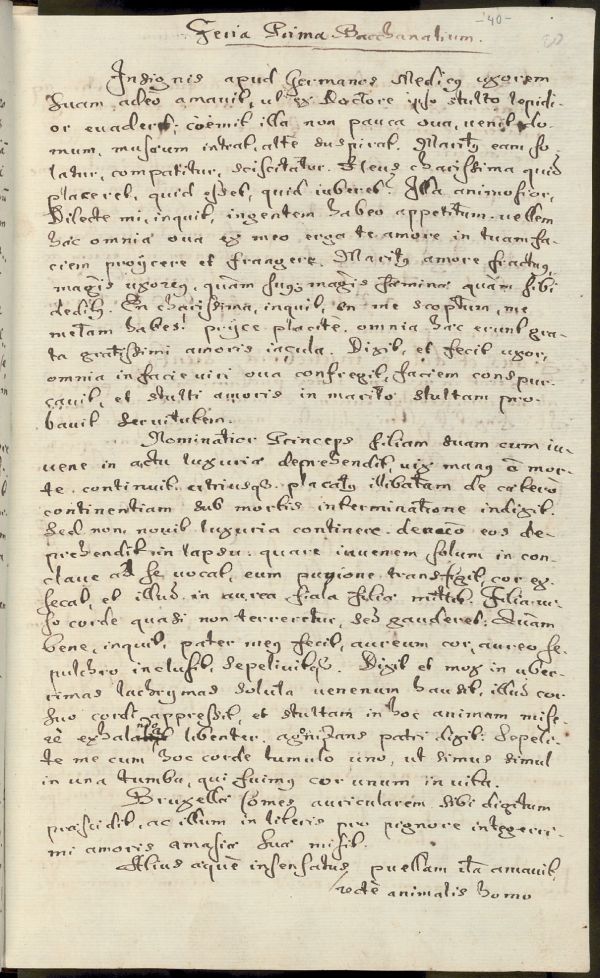 -40-
Feria Prima Bacchanalium.
Insignis apud Germanos Medicus uxorem
suam adeo amavit, ut ex Doctore ipso stulto lepidi-
or evaderet; coemit illa non pauca ova, venit do-
mum, musaeum intrat, alte suspirat. Maritus eam so
latur, compatitur, sciscitatur. Heus charissima quid
placeret, quid esset, quid iuberet? Illa animosior,
Dilecte mi, inquit, ingentem habeo appetitum. vellem
haec omnia ova ex meo erga te amore in tuam fa-
ciem proijcere et frangere. Maritus amore fractus,
magis uxoreus, quàm suus, magis foeminae quàm sibi
deditus. En charissima, inquit, en me scopum, me
metam habes! prijce placite, omnia haec erunt gra-
ta gratissimi amoris iacula. Dixit, et fecit uxor,
omnia in facie viri ova confregit, faciem conspur-
cavit, et stulti amoris in marito stultam pro-
bavit servitutem.
Nominatior Princeps filiam suam cum iu-
vene in actu luxuriae deprehendit, vix manus à mor-
te continuit utriusque. placatus illibatam de caetero
continentiam sub mortis interminatione indixit.
Sed non novit luxuria continere. denuo eos de-
prehendit in lapsu. quare iuvenem solum in con-
clave ad se vocat, eum pugione transfigit, cor ex-
secat, et illud in aurea fiala filiae mittit. Filia vi-
so corde quasi non terreretur, sed gauderet: Quam
bene, inquit, pater meus fecit, aureum cor, aureo se-
pulchro inclusit, sepelivitque. Dixit et mox in uber-
rimas lachrymas soluta venenum hausit, illud cor
suo cordi appressit, et stultam in hoc animam mise-
re exhalavit libenter. agonizans patri dixit: Sepeli-
te me cum hoc corde tumulo uno, ut simus simul
in una tumba, qui fuimus cor unum in vita.
Bruxellis Comes auricularem sibi digitum
praescidit, ac illum in literis pro pignore integerri-
mi amoris amasiae suae misit.
Alius aequè insensatus puellam ita amavit,
recte animalis homo